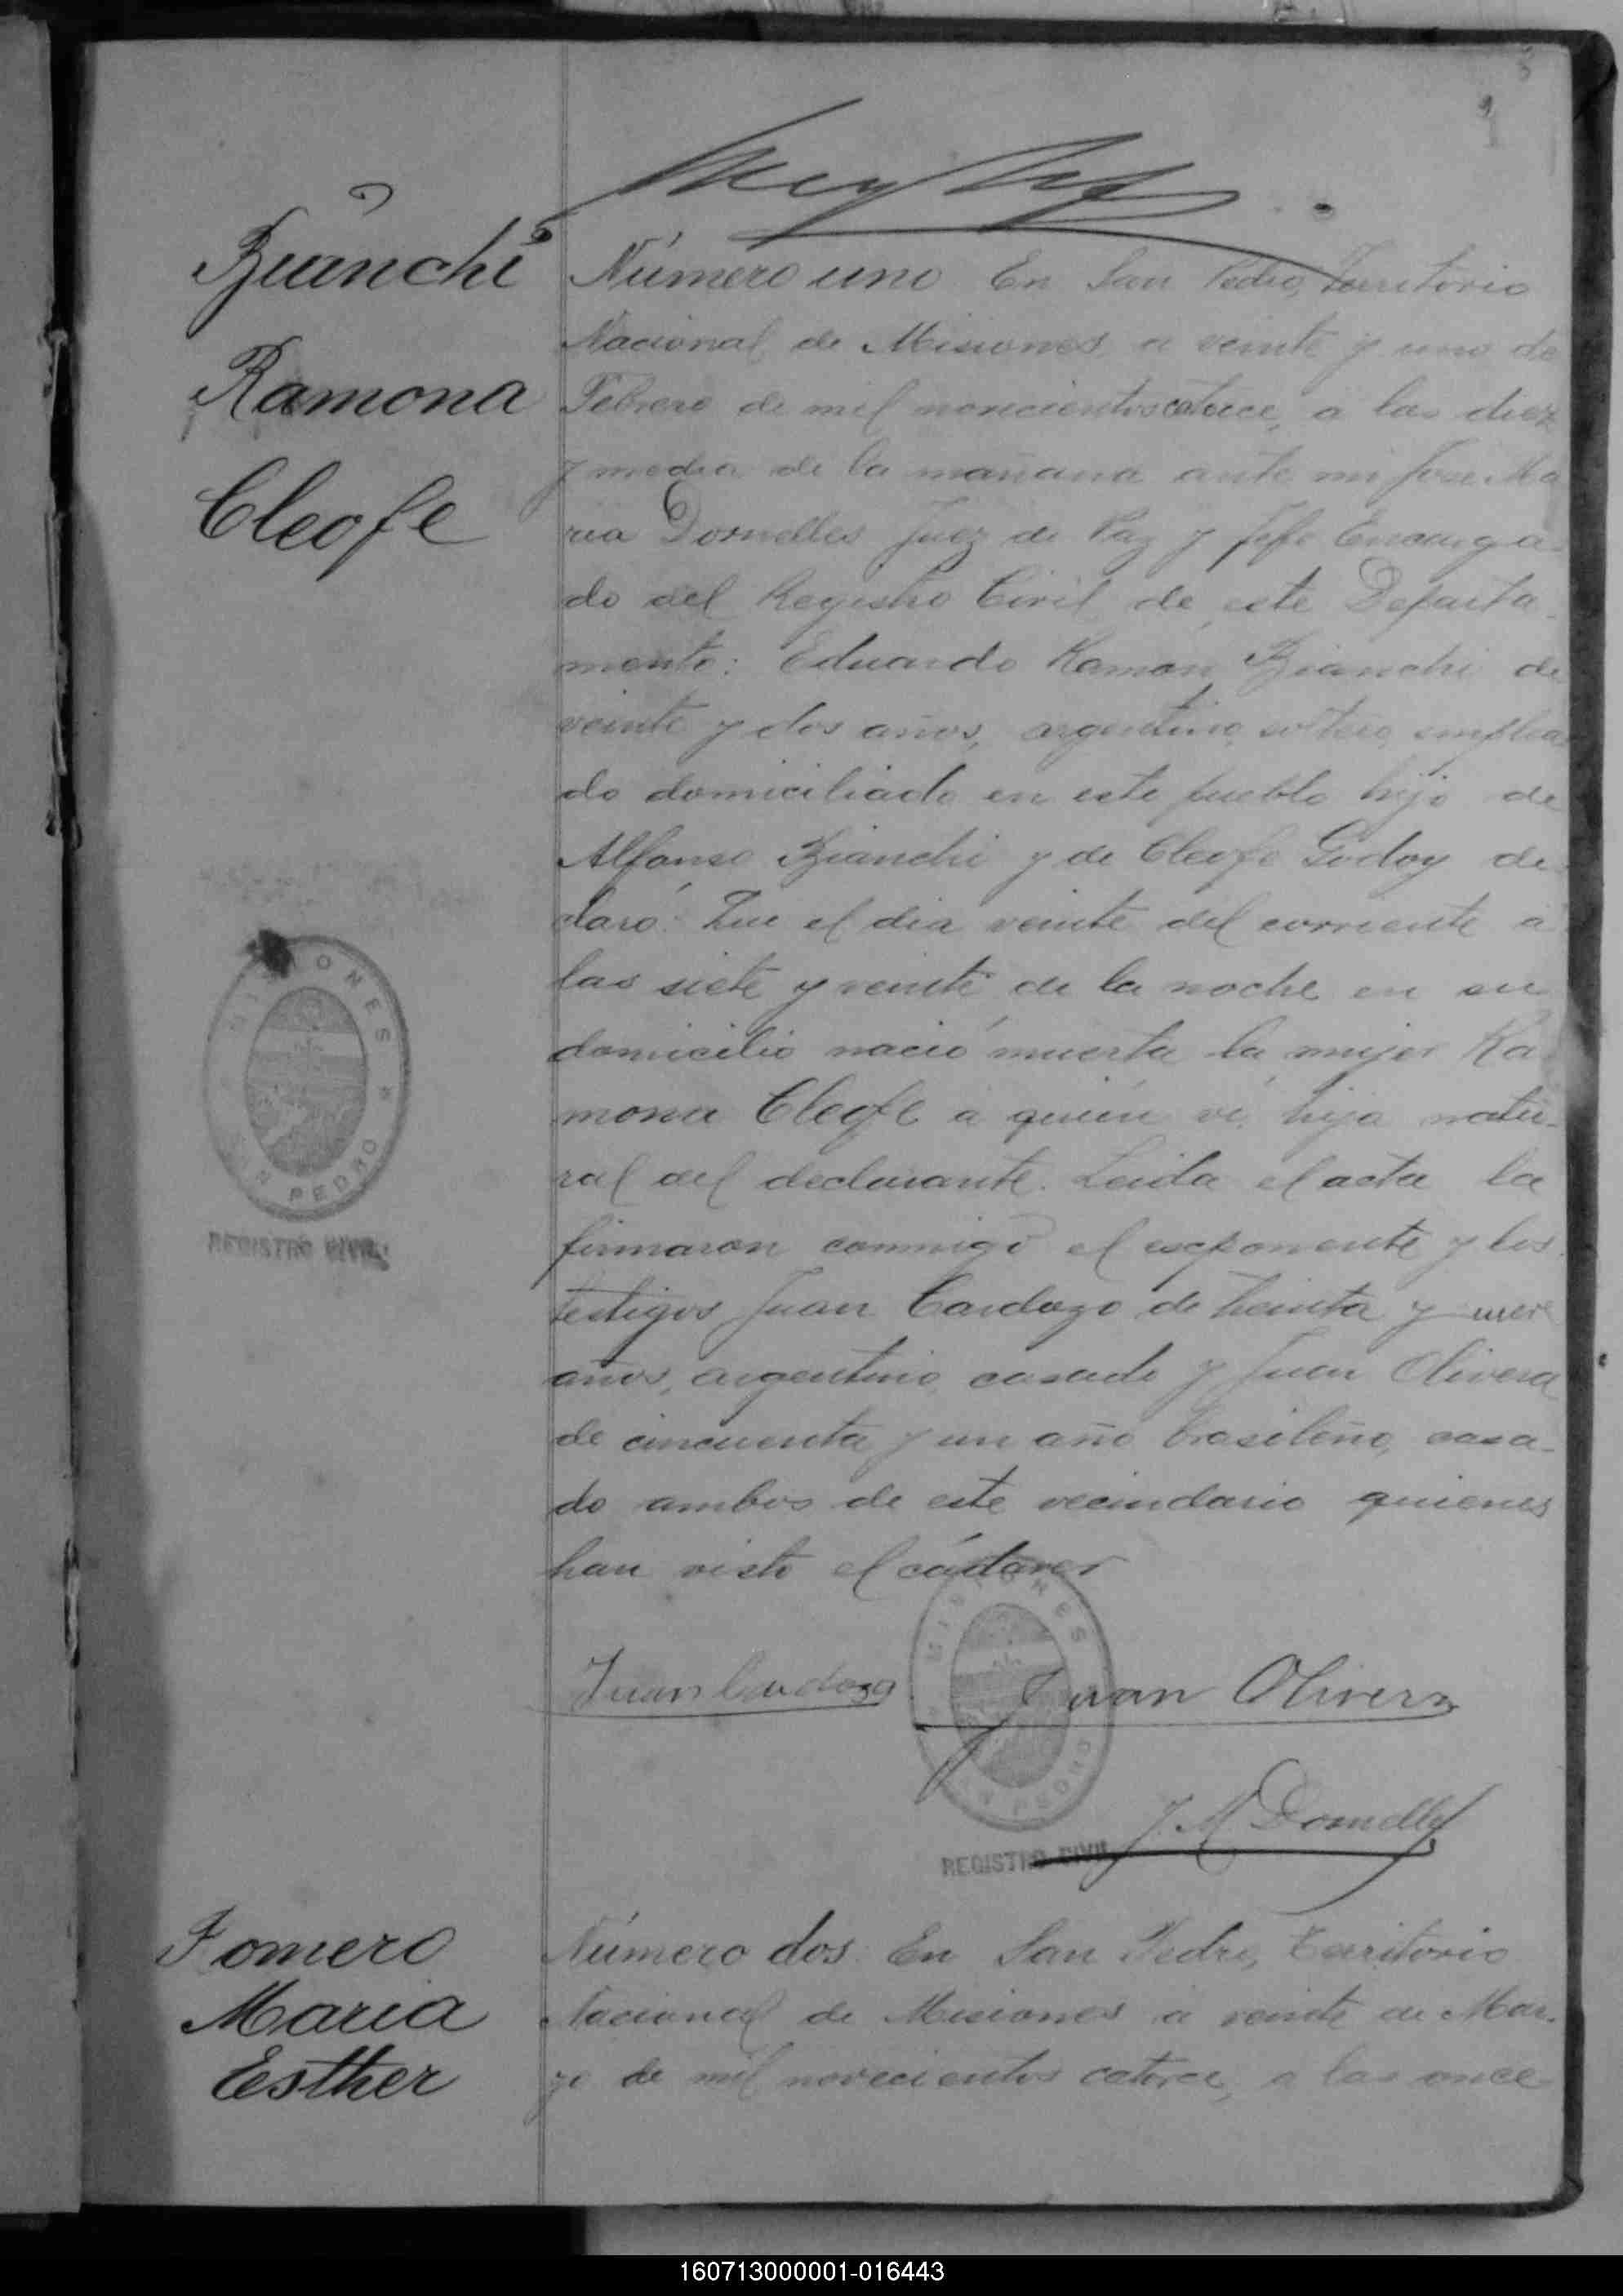 1
Bianchi
Ramona
Cleofe
Número uno. En San Pedro, Territorio
Nacional de Misiones, a veinte y uno de
Febrero de mil novecientos catorce, a las diez
y media de la mañana ante mi Jose Ma
ria Dornelles Juez de Paz y Jefe Encarga-
do del Registro Civil de este Departa-
mento: Eduardo Ramon Bianchi de
veinte y dos años, argentino, soltero, emplea-
do domiciliado en este pueblo hijo de
Alfonso Bianchi y de Cleofe Godoy de-
claró: Que el dia veinte del corriente á
las siete y veinte de la noche en su
domicilio nació muerta la mujer Ra-
mona Cleofe á quién ví, hija natu-
ral del declarante. Leida el acta la
firmaron conmigo el exponente y los
testigos Juan Cardozo de treinta y nueve
años, argentino, casado y Juan Olivera
de cincuenta y un año brasileño, casa-
do ambos de este vecindario quienes
han visto el cádaver
MISIONES
SAN PEDRO
REGISTRO CIVIL
Juan Cardozo
Juan Olivera
MISIONES
SAN PEDRO
REGISTRO CIVIL
J. M Dornelles
Fomero
Maria
Esther
Número dos. En San Pedro, Territorio
Nacional de Misiones á veinte de Mar-
zo de mil novecientos catorce, a las once
160713000001-016443